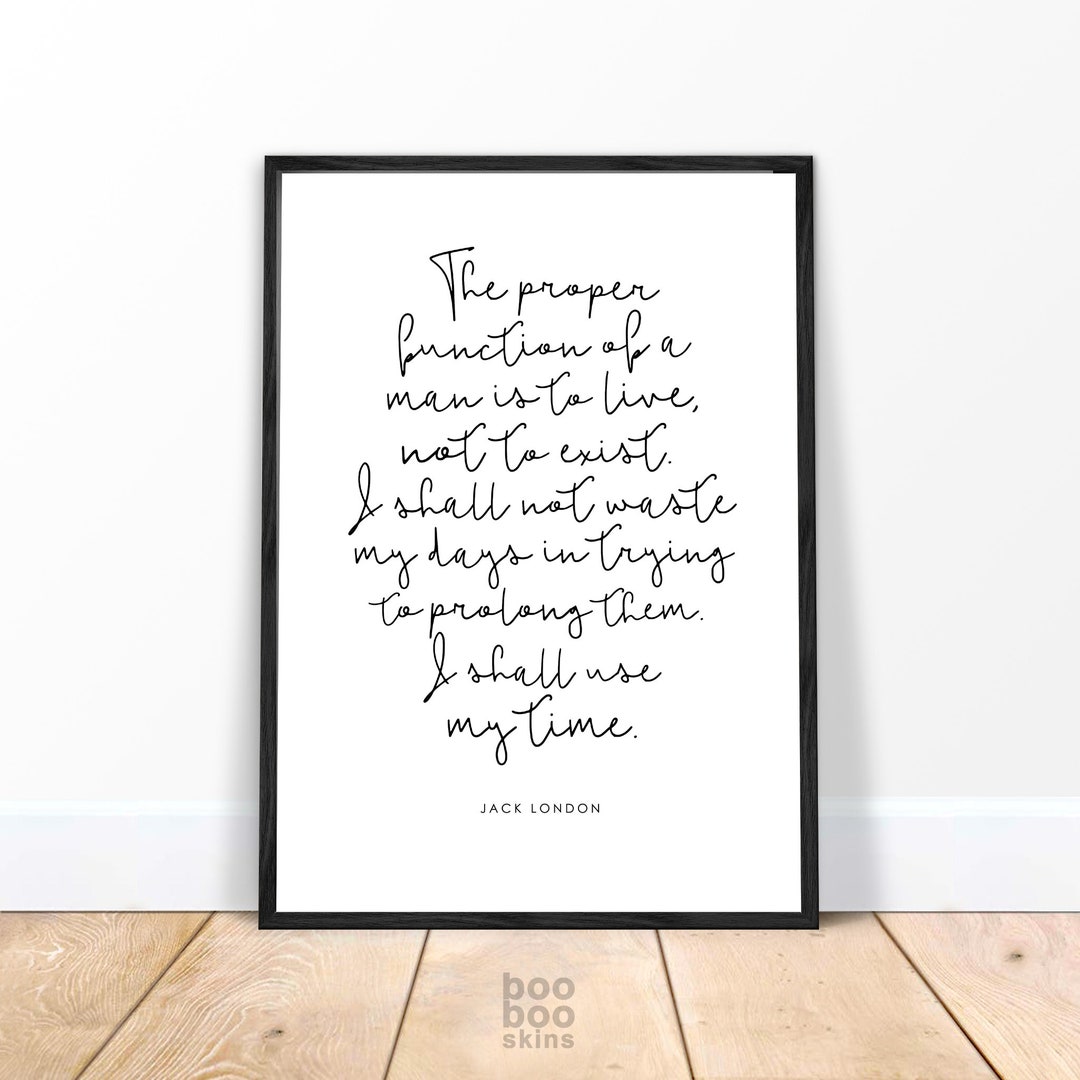 The proper
function of a
man is to live,
not to exist.
I shall not waste
my days in trying
to prolong them.
I shall use
my time.
JACK LONDON
boo
boo
skins